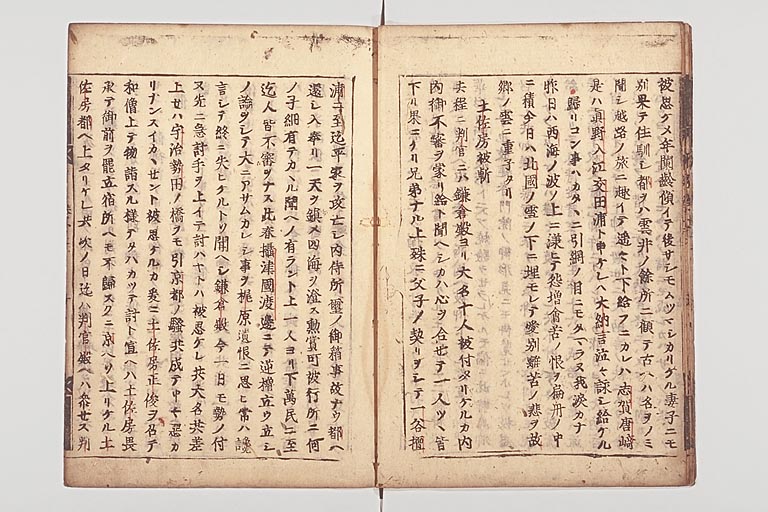 被思ケメ年闌齢傾イテ後サシモムツマシカリケル妻子ニモ
別果テ住馴シ都ヲハ雲井ノ餘所ニ顧テ古ヘハ名ヲノミ
聞シ越路ノ旅ニ趣イテ遥々ト下給フニカレハ志賀唐崎
是ハ真野入江交田浦ト申ケレハ大納言泣々詠シ給ケル
歸リコン事ハカタヽニ引網ノ目ニモタマラヌ我涙カナ
昨日ハ西海ノ波ノ上ニ漾ニテ怨憎會苦ノ恨ヲ扁舟ノ中
ニ積今日ハ北國ノ雪ノ下ニ埋モレテ愛別離苦ノ悲ヲ故
郷ノ雲ニ重タリ
土佐房被斬
去程ニ判官ニハ鎌倉殿ヨリ大名十人被付タリケルカ内
内御不審ヲ蒙リ給ト聞ヘシカハ心ヲ合セテ一人ツヽ皆
下リ果ニケリ兄弟ナル上殊ニ父子ノ契リヲシテ一谷檀
浦ニ至迄平家ヲ攻亡シ内侍所璽ノ御箱事故ナウ都ヘ
還シ入奉リ一天ヲ鎮メ四海ヲ澄ス勲賞可被行所ニ何
ノ子細有テカヽル聞ヘノ有ラント上一人ヨリ下萬民ニ至
迄人皆不審ヲナス此春攝津國渡邊ニテ逆櫓立ウ立シ
ノ論ヲシテ大ニアサムカレシ事ヲ梶原遺恨ニ思ヒ常ハ讒
言シテ終ニ失ヒケルトソ聞ヘシ鎌倉殿今一日モ勢ノ付
ヌ先ニ急討手ヲ上イテ討ハヤトハ被思ケレ共大名共差
上セハ宇治勢田ノ橋ヲモ引京都ノ騒共成テ中々悪カ
リナンスイカヽセント被思ケルカ爰ニ土佐房正俊ヲ召テ
和僧上テ物詣スル様テタハカツテ討ト宣ヘハ土佐房畏
承テ御前ヲ罷立宿所ヘモ不歸スクニ京ヘソ上リケル土
佐房都ヘ上タリケレ共次ノ日迄ハ判官殿ヘハ参セス判